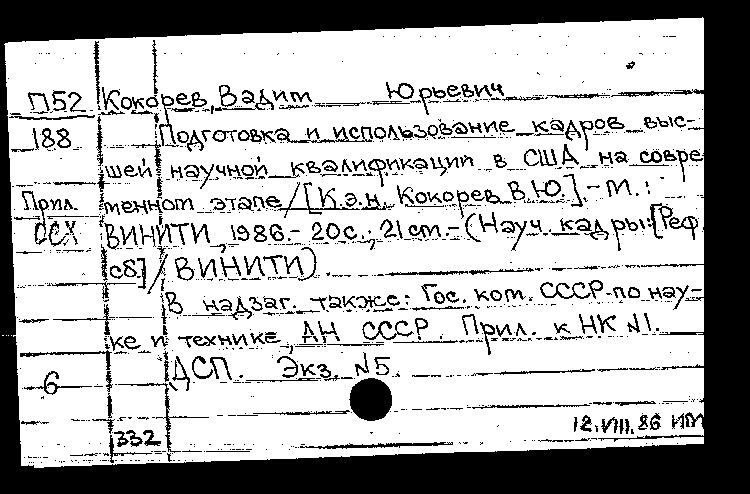 П52 Кокорев, Вадим Юрьевич
188 Подготовка и использование кадров выс-
шей научной квалификации в США на совре
Прил. менном этапе / [К.э.н. Кокорев В.Ю.]. - М.:
ОСХ ВИНИТИ, 1986. - 20с.; 21см. - (Науч. кадры: [Реф.
сб] / ВИНИТИ).
В надзаг. также: Гос. ком. СССР по нау-
ке и технике, АН СССР. Прил. к НК N1.
6 ДСП. Экз. N5.
332 12.VIII.86 ИМ